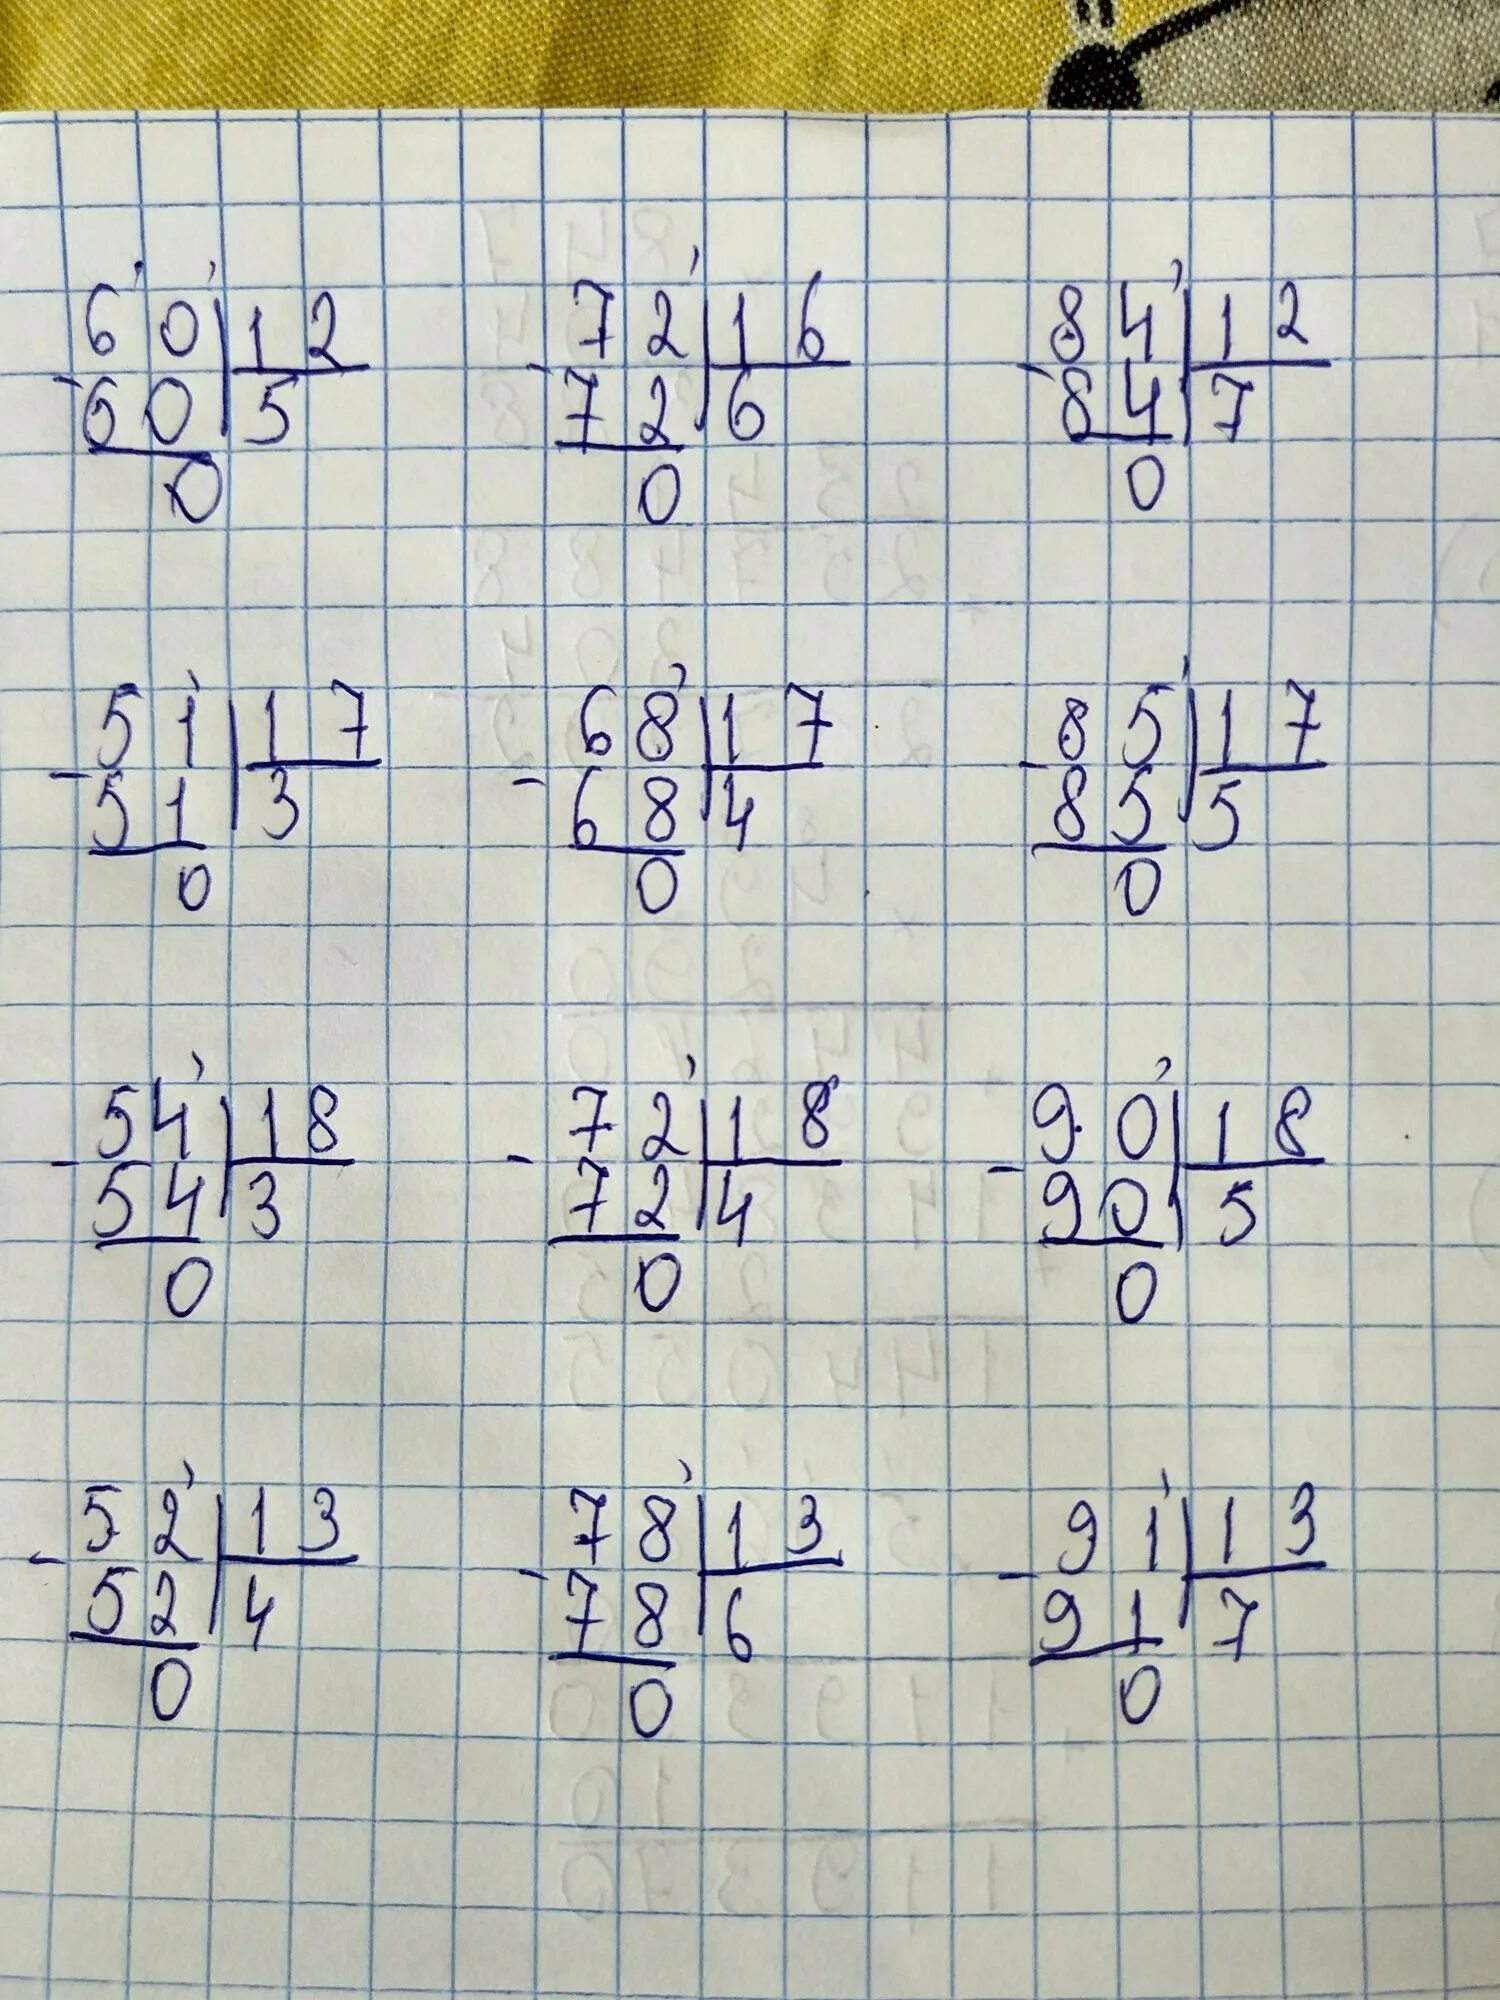 60 12 72 16 84 12
- 60 5 - 72 6 - 84 7
0 0 0
51 17 68 17 85 17
- 51 3 - 68 4 - 85 5
0 0 0
54 18 72 18 90 18
- 54 3 - 72 4 - 90 5
0 0 0
52 13 78 13 91 13
- 52 4 - 78 6 - 91 7
0 0 0